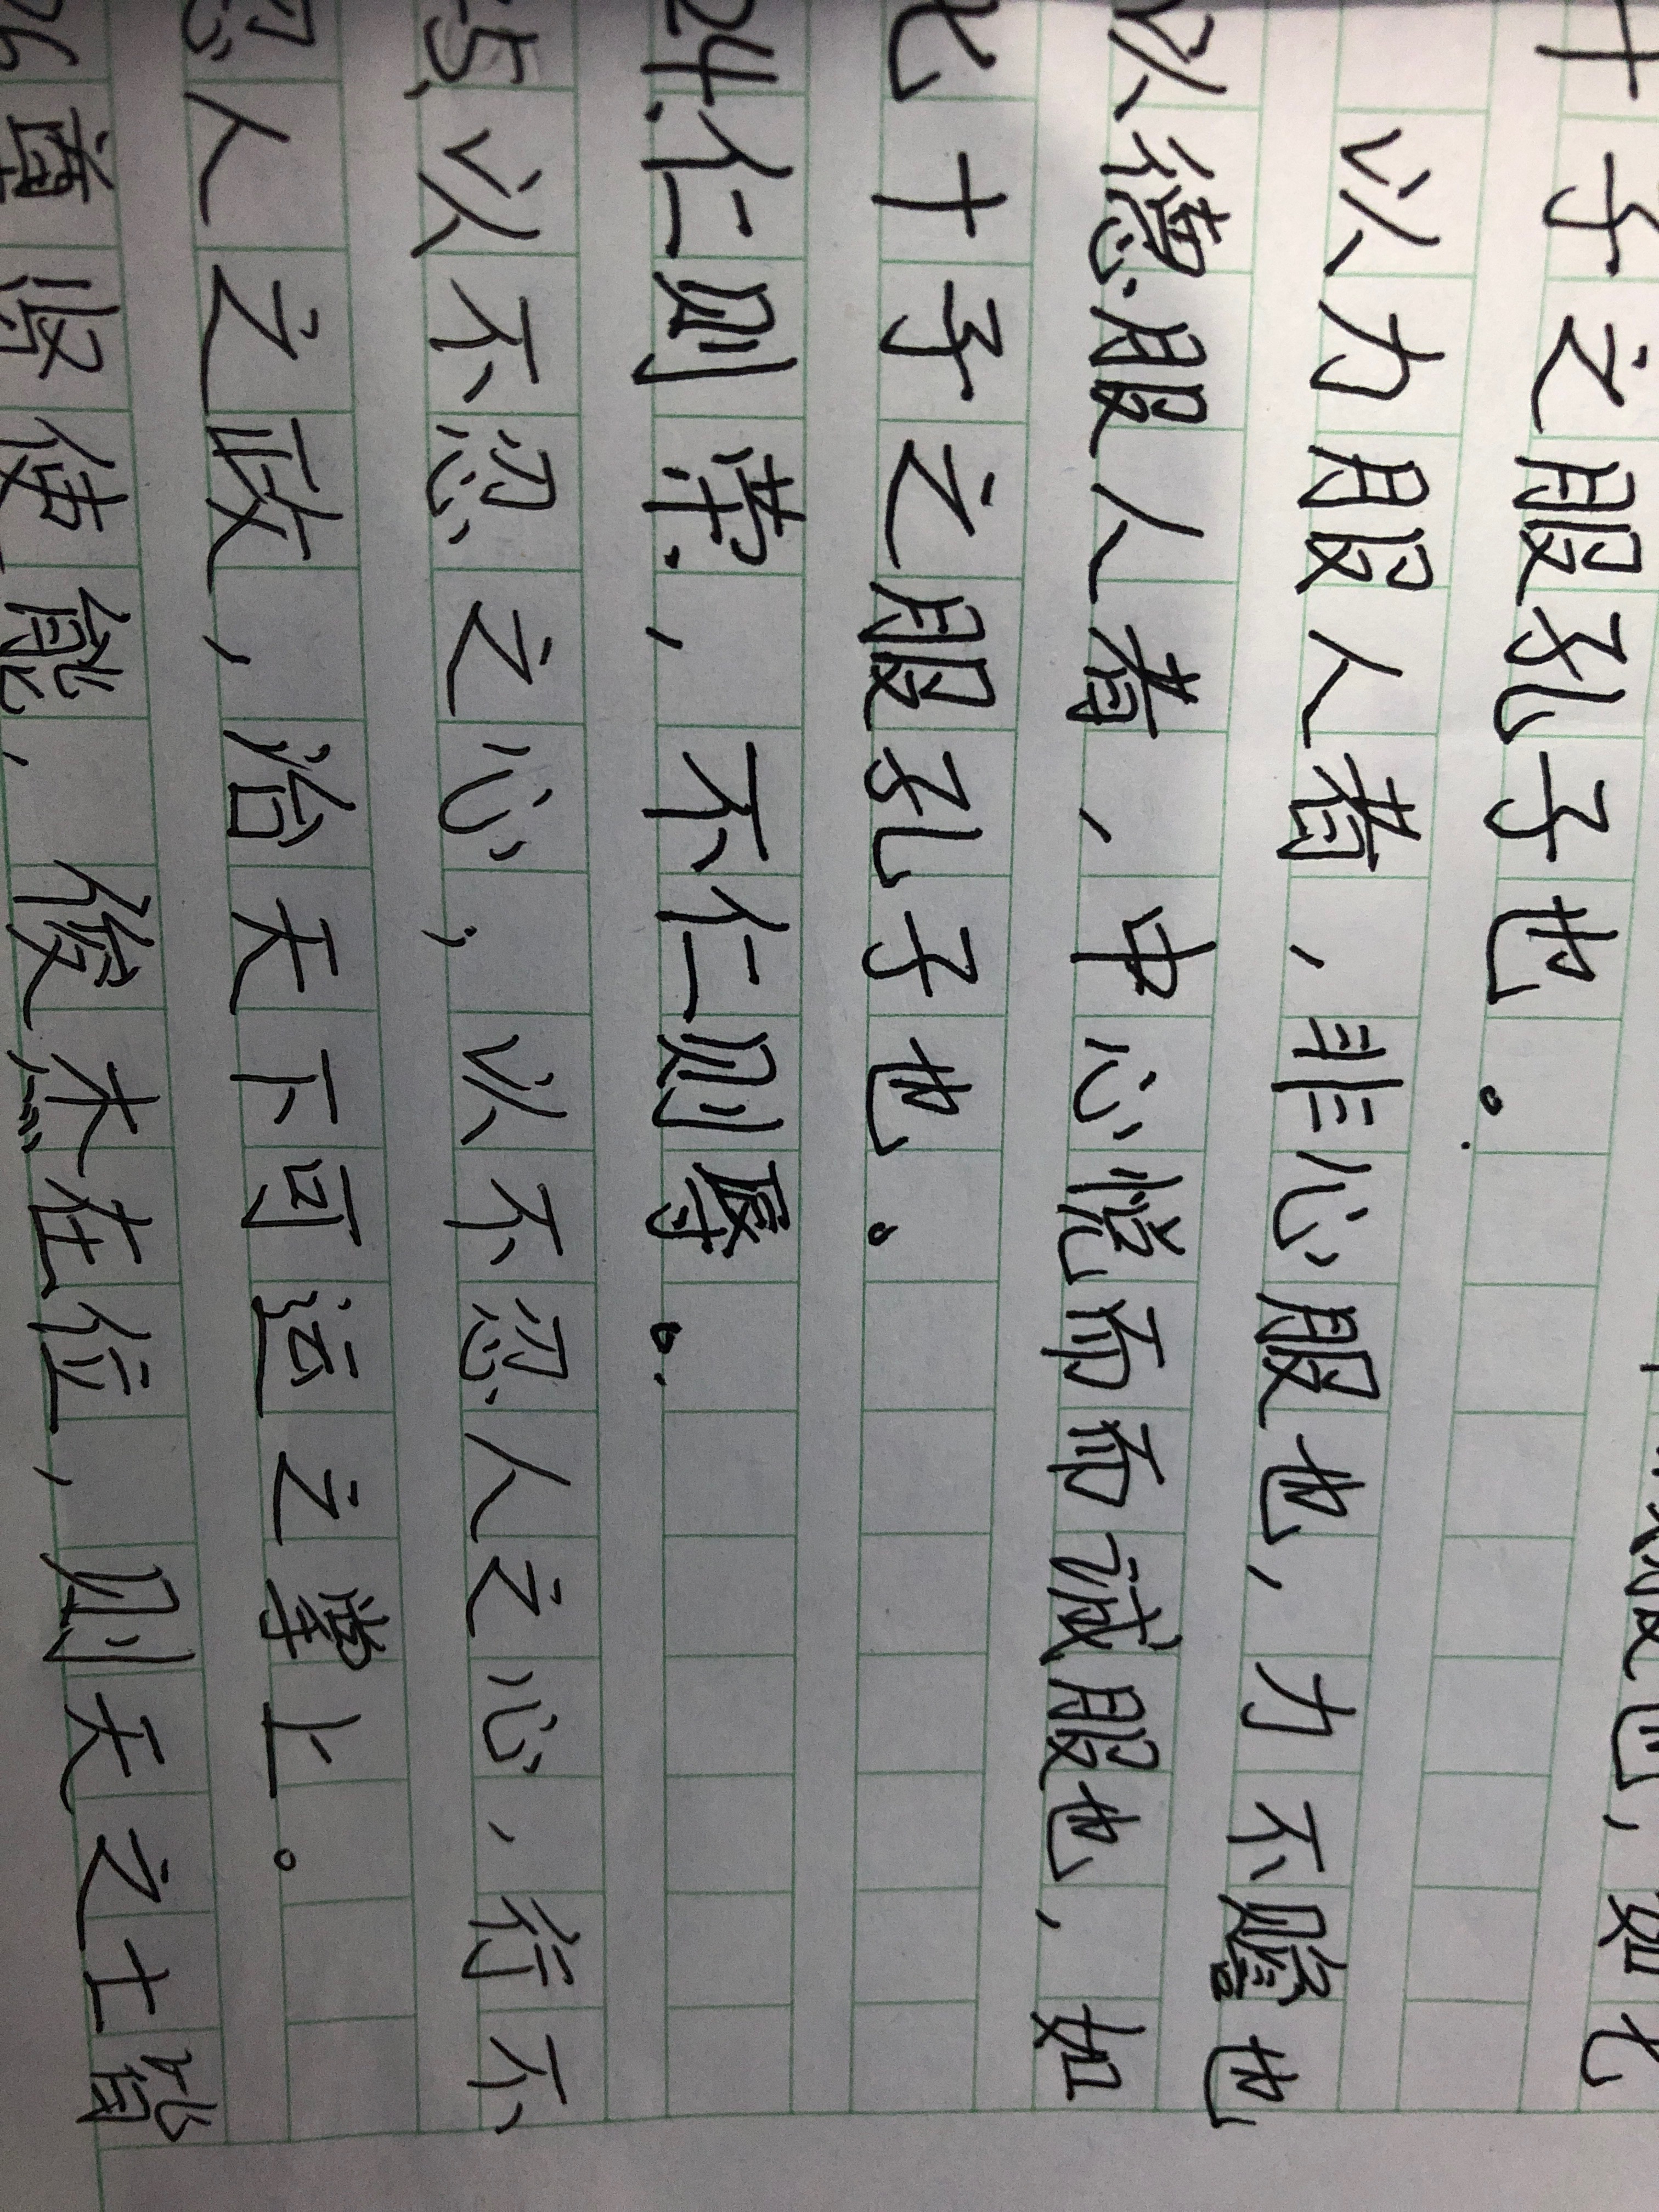 服也，如七
十子之服孔子也。
以力服人者，非心服也，力不赡也
以德服人者，中心悦而而诚服也，如
七十子之服孔子也。
24.仁则荣，不仁则辱。
25、以不忍之心；以不忍人之心，行不
忍人之政，治天下可运之掌上。
26 尊贤使能，俊杰在位，则天之士皆